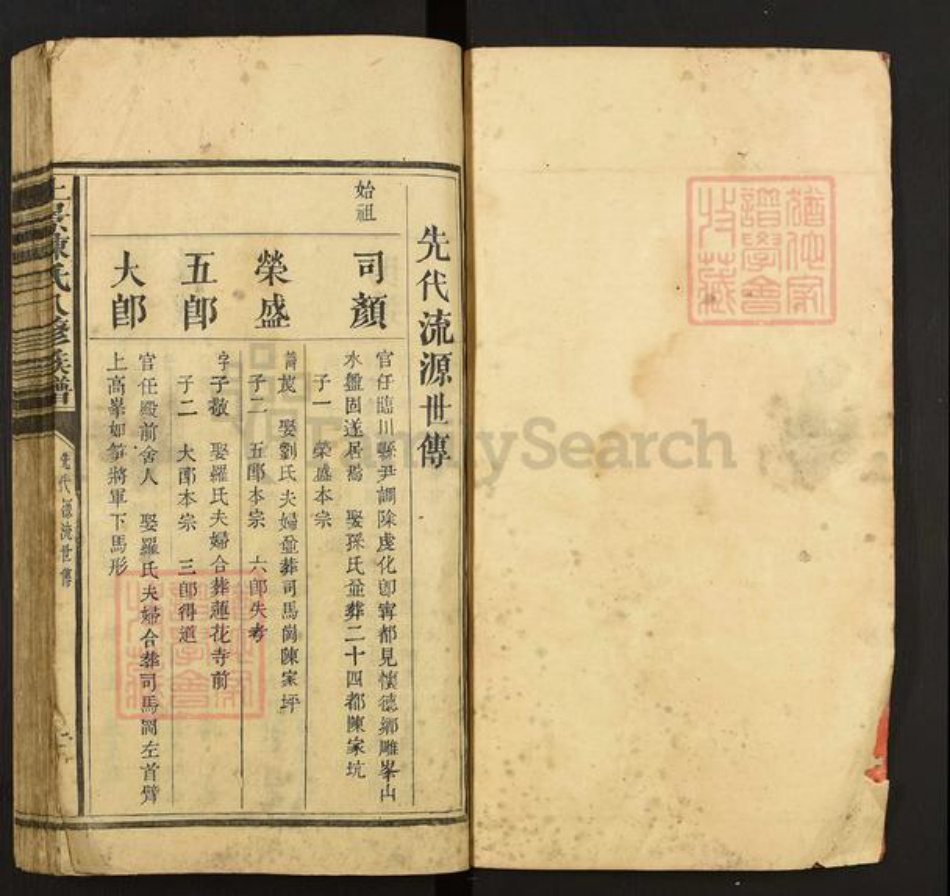 先代流源世傳
始祖
司顏
官任臨川縣尹調陞虔化卽寗都見懷德鄉雕峯山
水盤固遂居焉 娶孫氏並葬二十四都陳家坑
子一 榮盛本宗
榮盛
娶劉氏夫婦並葬司馬崗陳家坪
子二 五郎本宗 六郎失考
五郎
字子敬 娶羅氏夫婦合葬蓮花寺前
子二 大郎本宗 三郎得道
大郎
官任殿前舍人 娶羅氏夫婦合葬司馬崗左首臂
上高峯如笋將軍下馬形
陳氏八修族譜
先代源流世傳
猶他家
譜學會
收藏
FamilySearch